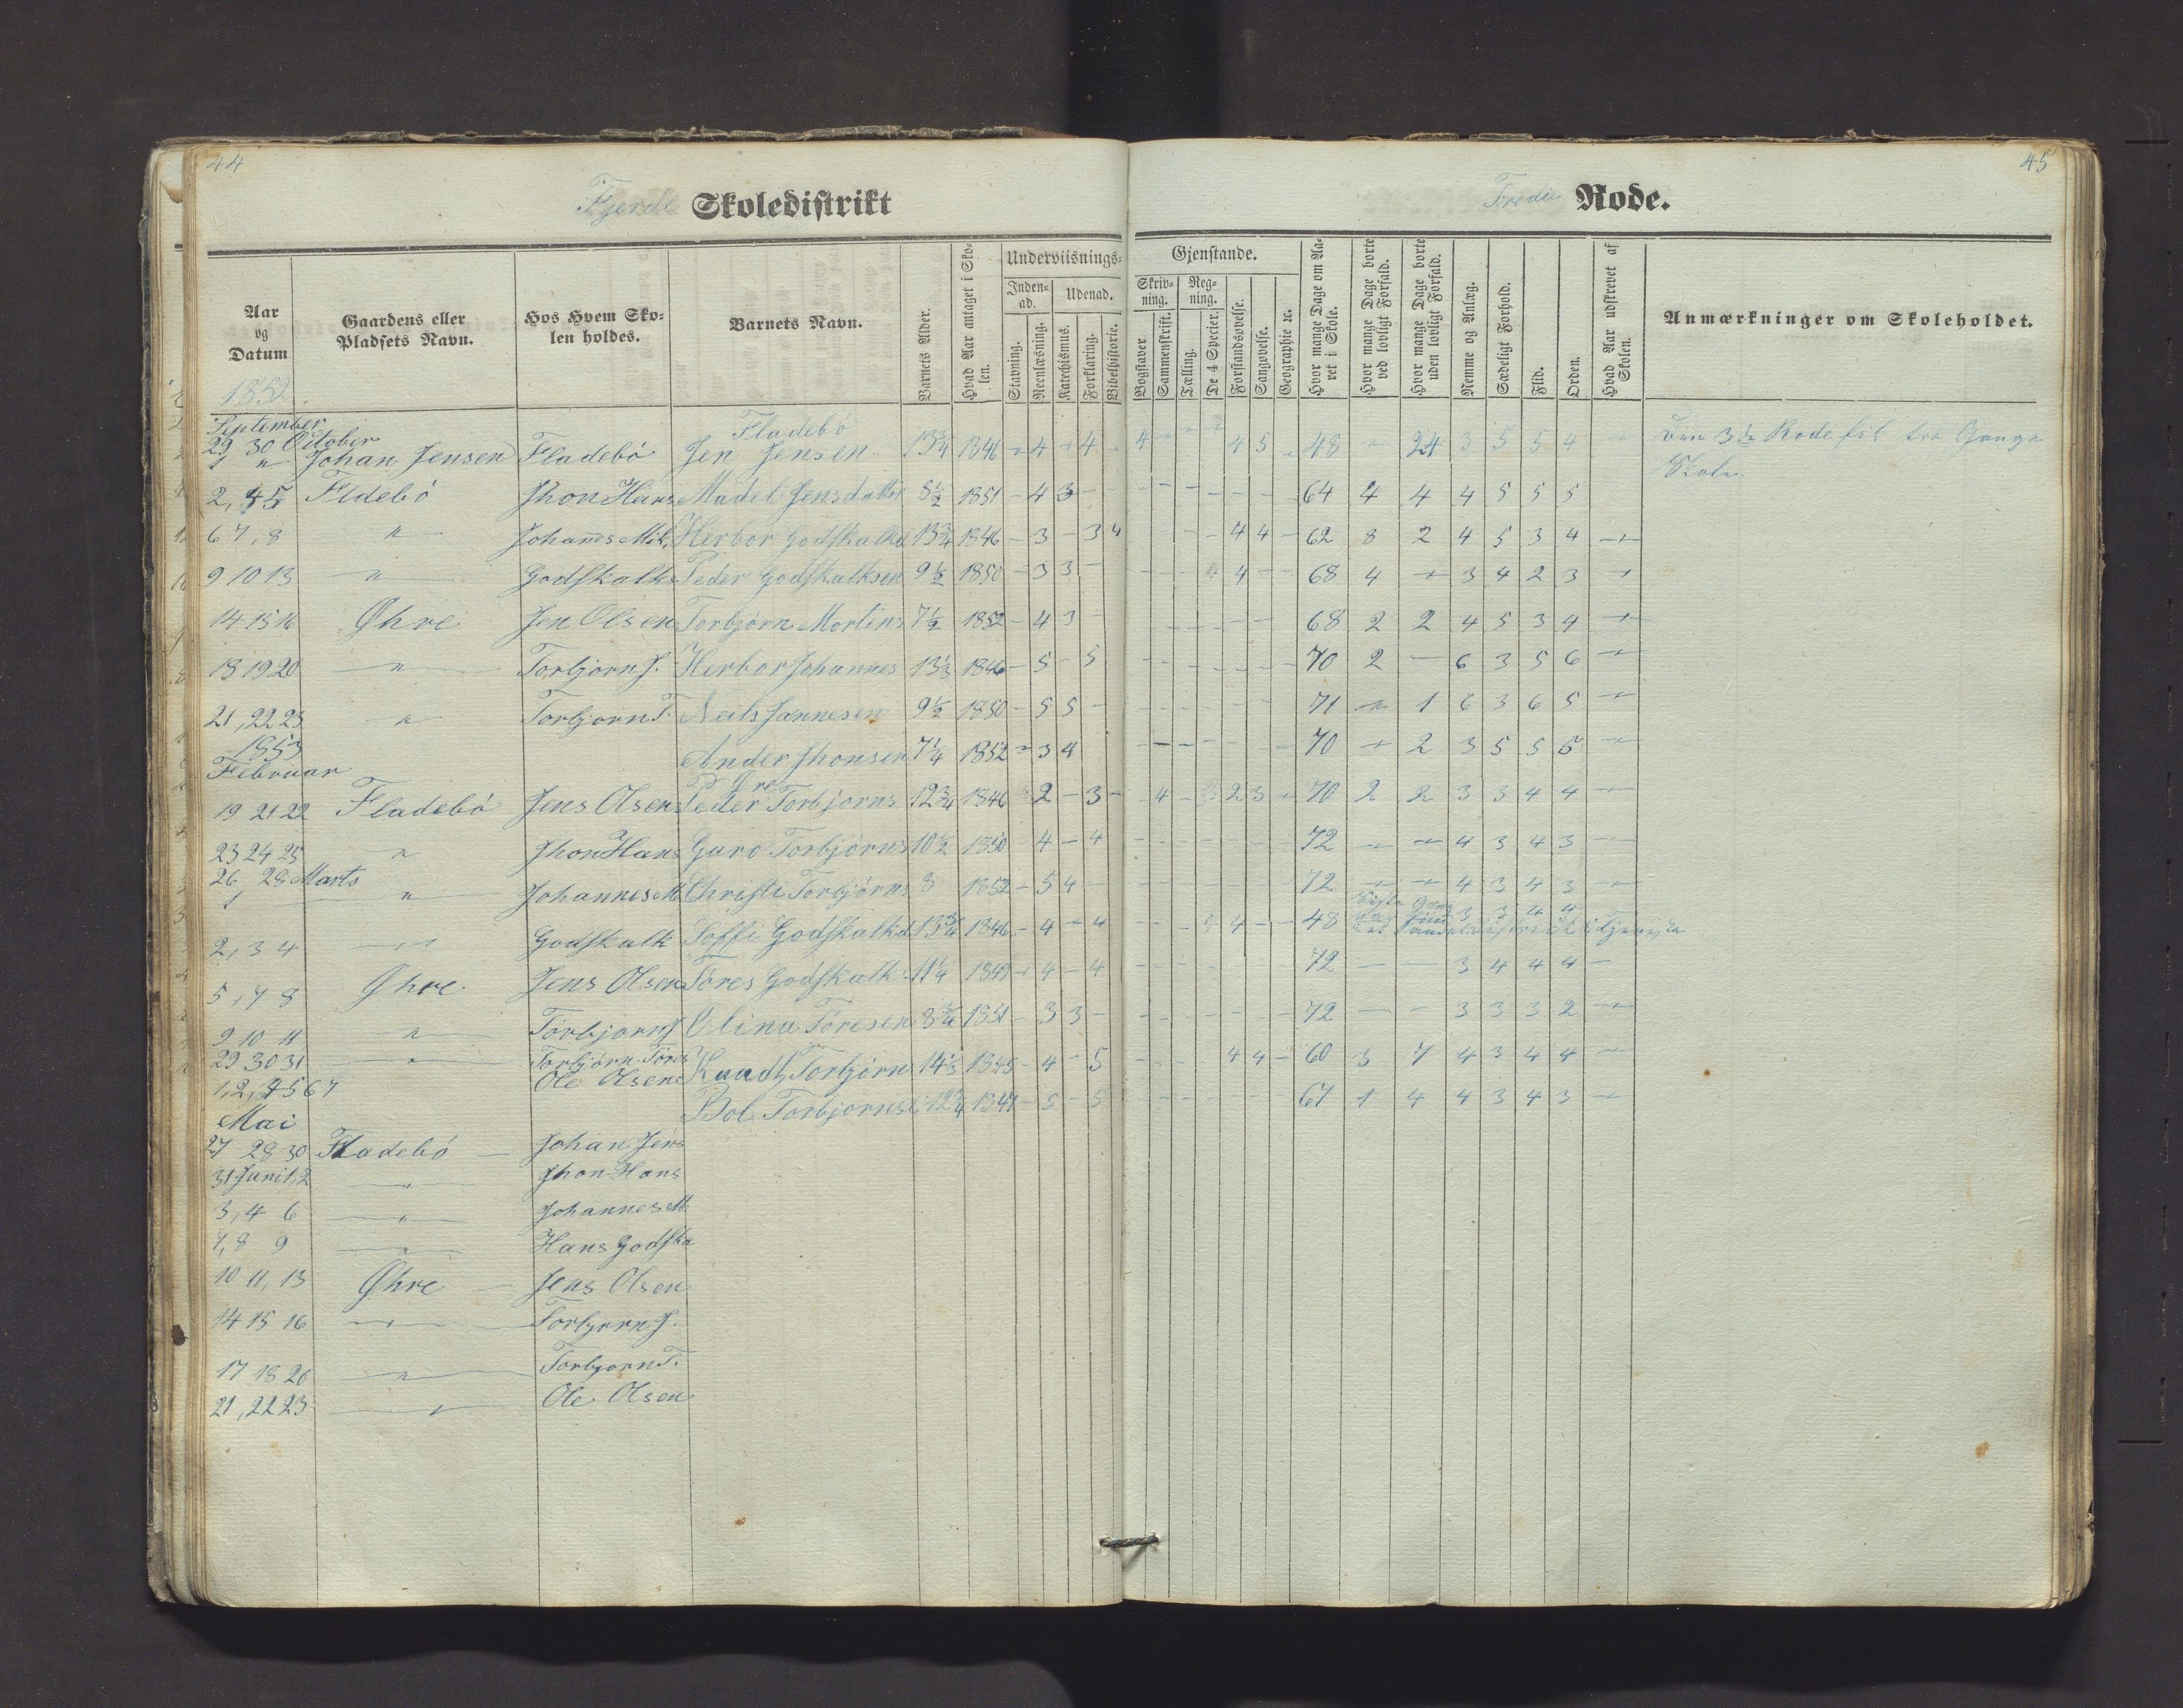 44
45
Fjerde Skoledistrikt
Tredie Rode.
Aar og Datum
Gaardens eller Pladsets Navn.
Hos Hvem Skolen holdes.
Barnets Navn.
Barnets Alder.
Hvad Aar antaget i Skolen.
Underviisnings-
Gjenstande.
Indenad.
Udenad.
Stavning.
Reenlæsning.
Katechismus.
Forklaring.
Bibelhistorie.
Skrivning.
Regning.
Bogstaver.
Sammenskrift.
Tælling.
De 4 Specier.
Forstandsøvelse.
Sangøvelse.
Geographie ꝛc.
Hvor mange Dage om Aaret i Skole.
Hvor mange Dage borte ved lovligt Forfald.
Hvor mange Dage borte uden lovligt Forfald.
Nemme og Anlæg.
Sædeligt Forhold.
Flid.
Orden.
Hvad Aar udskrevet af Skolen.
Anmærkninger om Skoleholdet.
1852
September
Fladebó
29 30 October
1 " Johan Jensen Fladebó Jen Jensen 13 3/4 1846 - 4 - 4 - 4 - - - 4 5 - 48 " 24 3 5 5 4 - Den 3die Rode fik tre Gange
Skole.
2, 4 5 Fldebó Jhon Hans Madel Jensdatter 8 1/2 1851 - 4 3 - - - - - - - 64 4 4 4 5 5 5
6 7, 8 " Johanes Mik. Herbor Godskalkd 13 3/4 1846 - 3 - 3 4 - - 4 4 - 62 8 2 4 5 3 4 -
9 10 13 " Godskalk Peder Godskalksen 9 1/2 1850 - 3 3 - - - - 4 - - 68 4 - 3 4 2 3 -
14 15 16 Øhre Jen Olsen Torbjörn Mortens 7 1/2 1852 - 4 3 - - - - - - - 68 2 2 4 5 3 4 -
18 19 20 " Torbjorn J. Herbor Johannes 13 1/3 1846 - 5 - 5 - - - - - - 70 2 - 6 3 5 6 -
21, 22 23 " Torbjorn T. Neils Jannesen 9 1/2 1850 - 5 5 - - - - - - - 71 " 1 6 3 6 5 -
1853
Ander Jhonsen 7 1/4 1852 - 3 4 - - - - - - 70 - 2 3 5 5 5 -
Februar
19 21 22 Fladebó Jens Olsen Peder Torbjorns 12 3/4 1846 - 2 - 3 - - 4 - 2 3 - 70 2 2 3 3 4 4 -
23 24 25 " Jhon Hans Guro Torbjörns 10 1/2 1850 - 4 - 4 - - - - - - 72 - - 4 3 4 3 -
26, 28 Marts
1 " Johannes M Christi Torbjörns 8 1852 - 5 4 - - - - - - - 72 - - 4 3 4 3 -
2, 3 4 " Godskalk Soffi Godskalkd 13 3/4 1846 - 4 - 4 - - - 4 - - 48 3 3 4 4
5, 7 8 Øhre Jens Olsen Tores Godskalk 11 1/4 1849 - 4 - 4 - - - - - - 72 - - 3 4 4 4 -
9 10 11 " Torbjorn J Olina Töresen 8 3/4 1851 - 3 3 - - - - - - - 72 - - 3 3 3 2 -
29 30 31 " Torbjörn Töres Knudt Torbjörn 14 1/3 1845 - 4 - 5 - - - 4 4 - 60 3 7 4 3 4 4 -
1, 2, 4 5 6 7 Ole Olsen
Bol Torbjorns 12 3/4 1847 - 5 - 5 - - - - - - 67 1 4 4 3 4 3 -
Mai
27 28 30 Fladebó - Johan Jens
31 Juni 1, 2 " Jhon Hans
3, 4 6 " Johannes M
7, 8 9 " Hans Godska
10 11, 13 Øhre - Jens Olsen
14 15 16 " Torbjorn J.
17 18 20 " Torbjorn T.
21, 22 23 " Ole Olsen